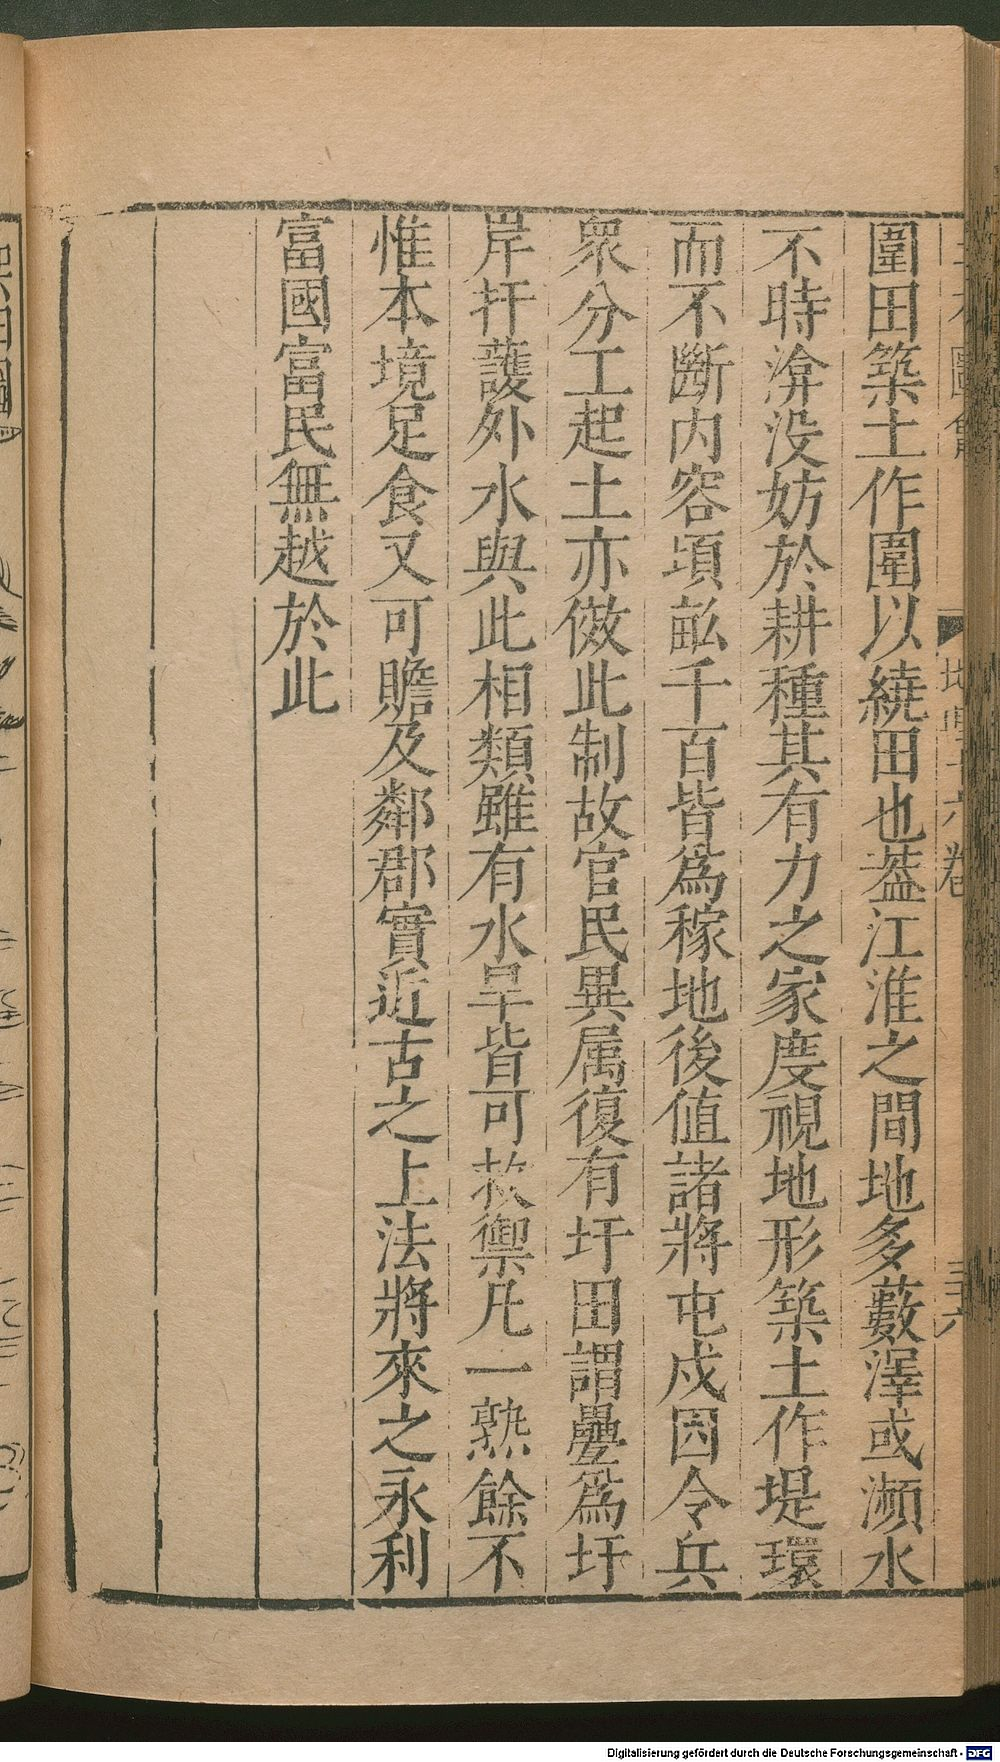 圍田築土作圍以繞田也葢江淮之間地多藪澤或瀕水
不時渰没妨於耕種其有力之家度視地形築土作堤環
而不斷内容頃畝千百皆爲稼地後值諸將屯戍因令兵
衆分工起土亦倣此制故官民異属復有圩田謂壘爲圩
岸扞護外水與此相類雖有水旱皆可救禦凡一熟餘不
惟本境足食又可贍及鄰郡實近古之上法將來之永利
富國富民無越於此
Digitalisierung gefördert durch die Deutsche Forschungsgemeinschaft - DFG